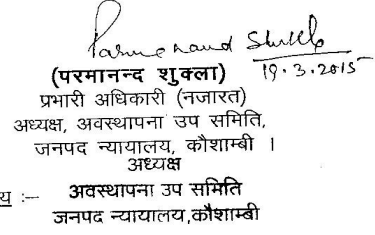 Parmanand Shukla
19.3.2015
(परमानन्द शुक्ला)
प्रभारी अधिकारी (नजारत)
अध्यक्ष, अवस्थापना उप समिति,
जनपद न्यायालय, कौशाम्बी ।
अध्यक्ष
य :– अवस्थापना उप समिति
जनपद न्यायालय,कौशाम्बी